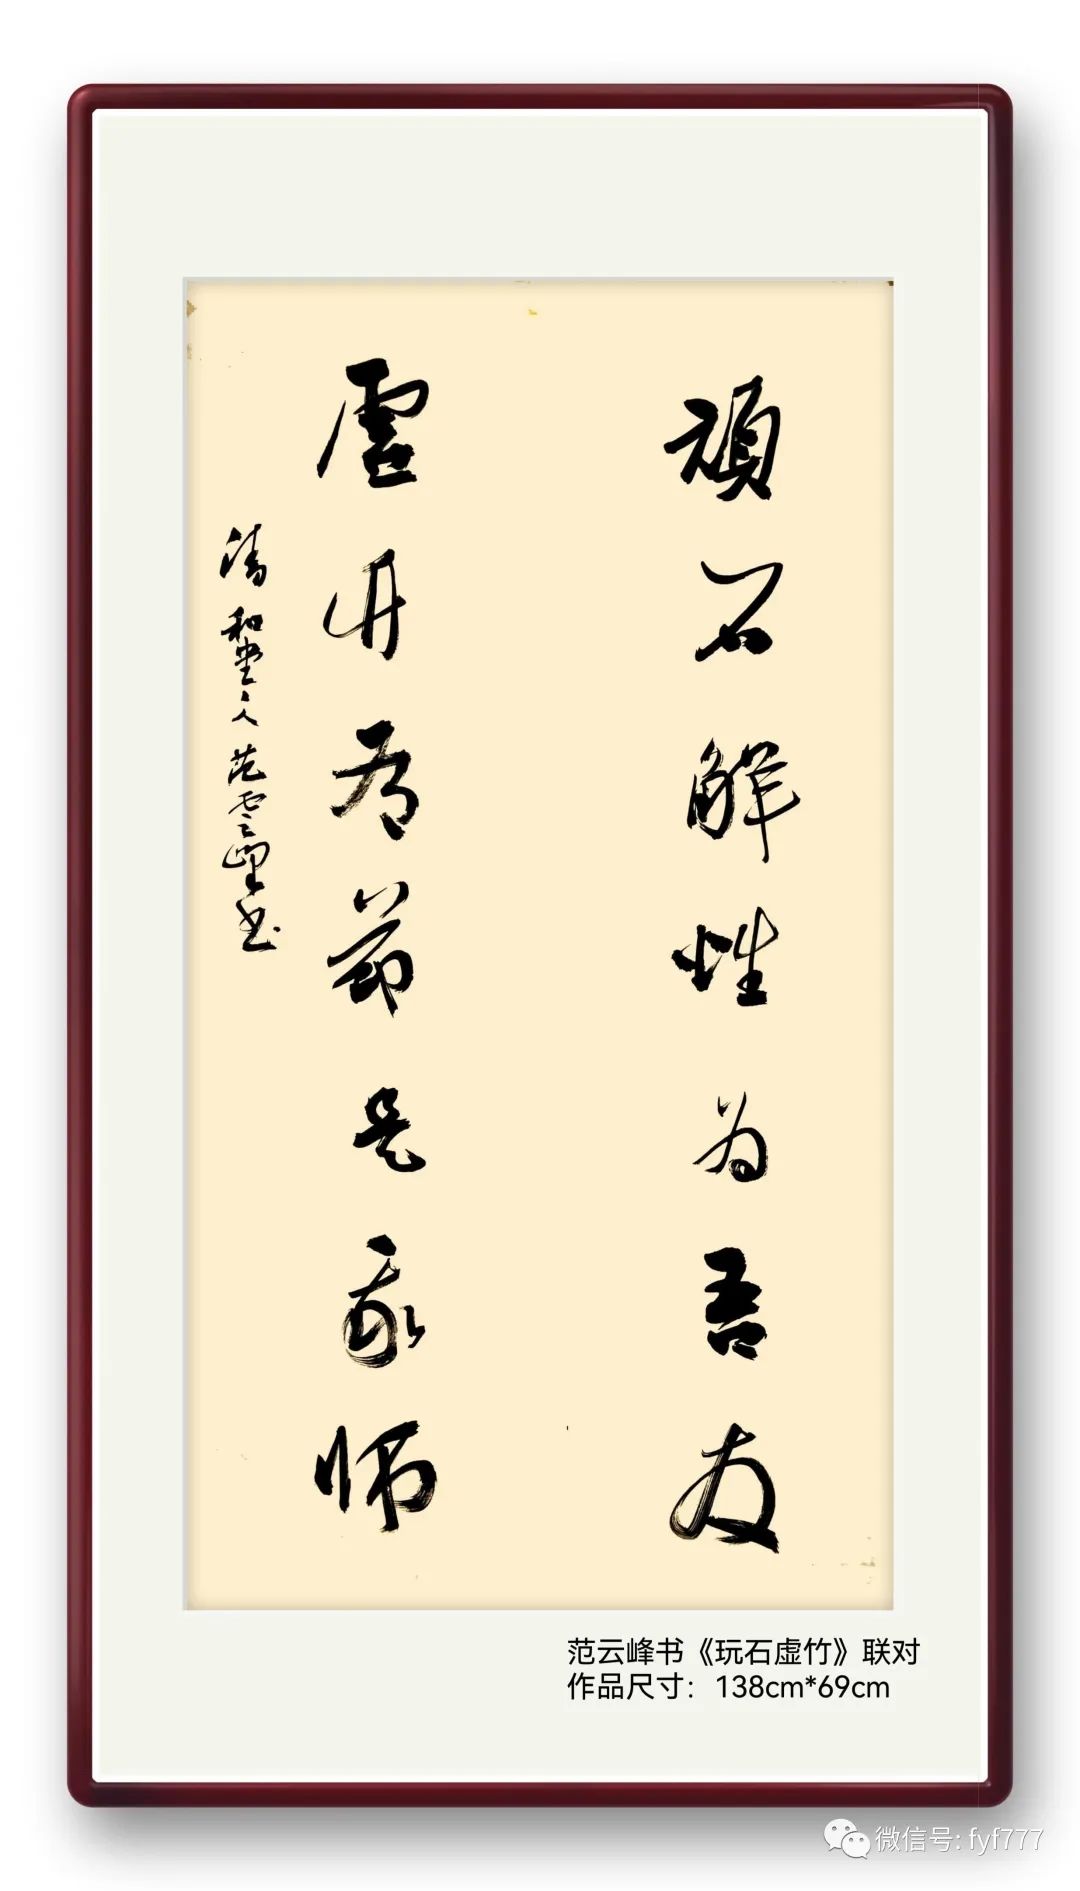 頑石解性为吾友
虚竹有節是我师
清和堂人范雲峰书
范云峰书《玩石虚竹》联对
作品尺寸：138cm*69cm
微信号: fyf777